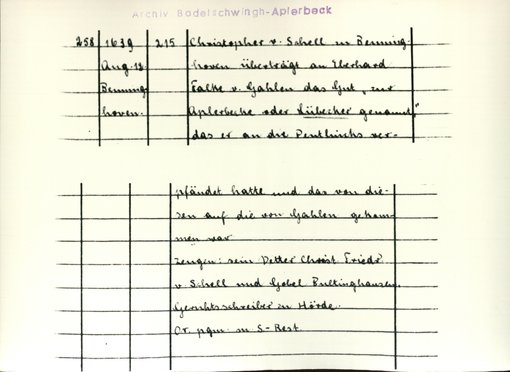 Archiv Bodelschwingh-Aplerbeck
258 1639 215 Christopher v. Schell in Benning-
Aug. 12 hoven überträgt an Eberhard
Benning- Falke v. Gahlen das Gut „zur
hoven. Aplerbecke oder Lübecker genannt,"
das er an die Penthincks ver-
pfändet hatte und das von die-
sen auf die von Gahlen gekom-
men war
Zeugen: sein Vetter Christ. Friedr.
v. Schell und Gobel Bultinghausen
Gerichtsschreiber zu Hörde.
Or. pgm. m S-Rest.